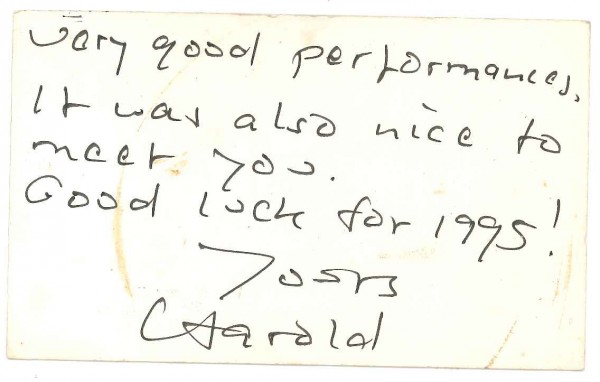 very good performances.
It was also nice to
meet you.
Good luck for 1995!
Yours
Harold